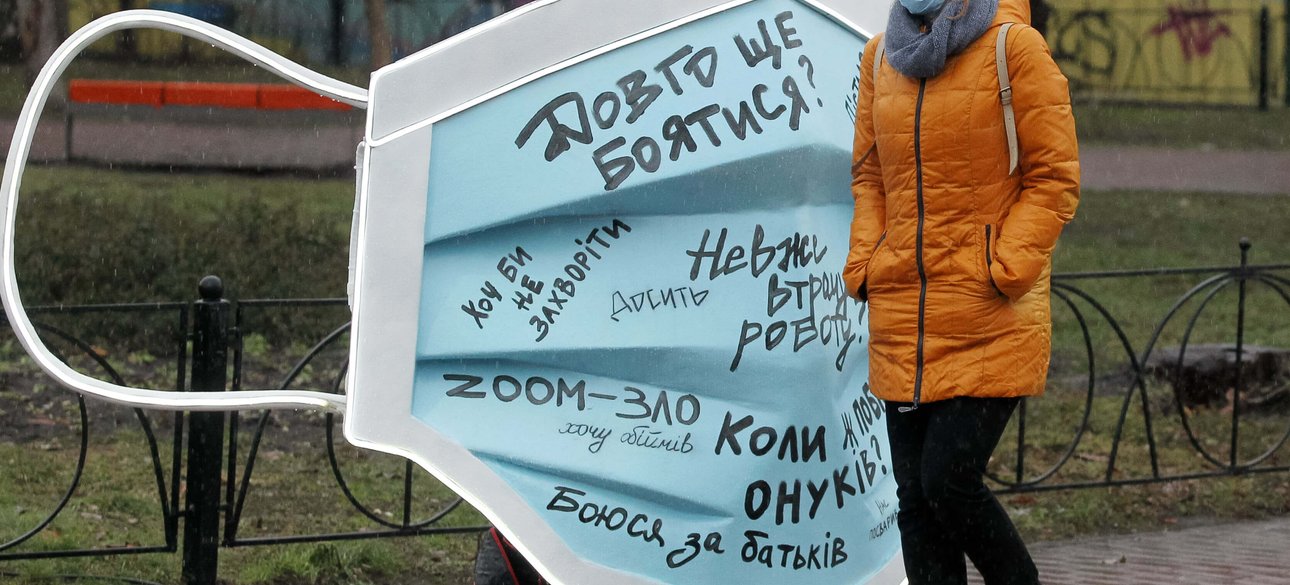 Довго ще
боятися?
Хоч би
не
захворіти
Досить
Невже
втрачу
роботу?
ZOOM-ЗЛО
хочу обіймів
Коли
онуків?
Боюся за батьків